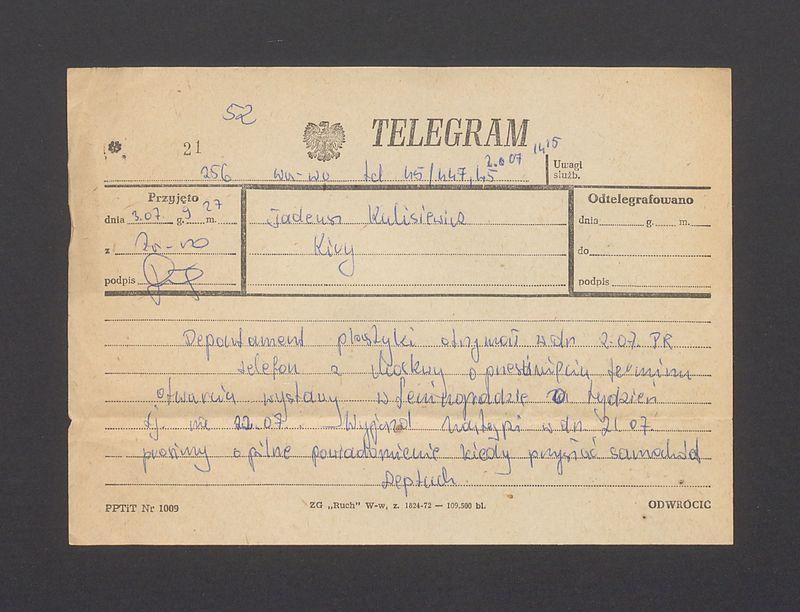 52
21
TELEGRAM
256 wa-wa tel 45/447,45 2.07 1415
Uwagi
służb.
Przyjęto
dnia 3.07 g. 9 m. 27
z
podpis
Tadeusz Kulisiewicz
Kiry
Odtelegrafowano
dnia g. m.
do
podpis
Departament plastyki otrzymał w dn 2.07. PR
telefon z Moskwy o przesunięciu terminu
otwarcia wystawy w Leningradzie o tydzień
tj. na 22.07. Wyjazd nastąpi w dn 21.07
prosimy o pilne powiadomienie kiedy przysłać samochód
Deptuch.
PPTiT Nr 1009
ZG „Ruch” W-w, z. 1824-72 — 109.500 bl.
ODWRÓCIĆ